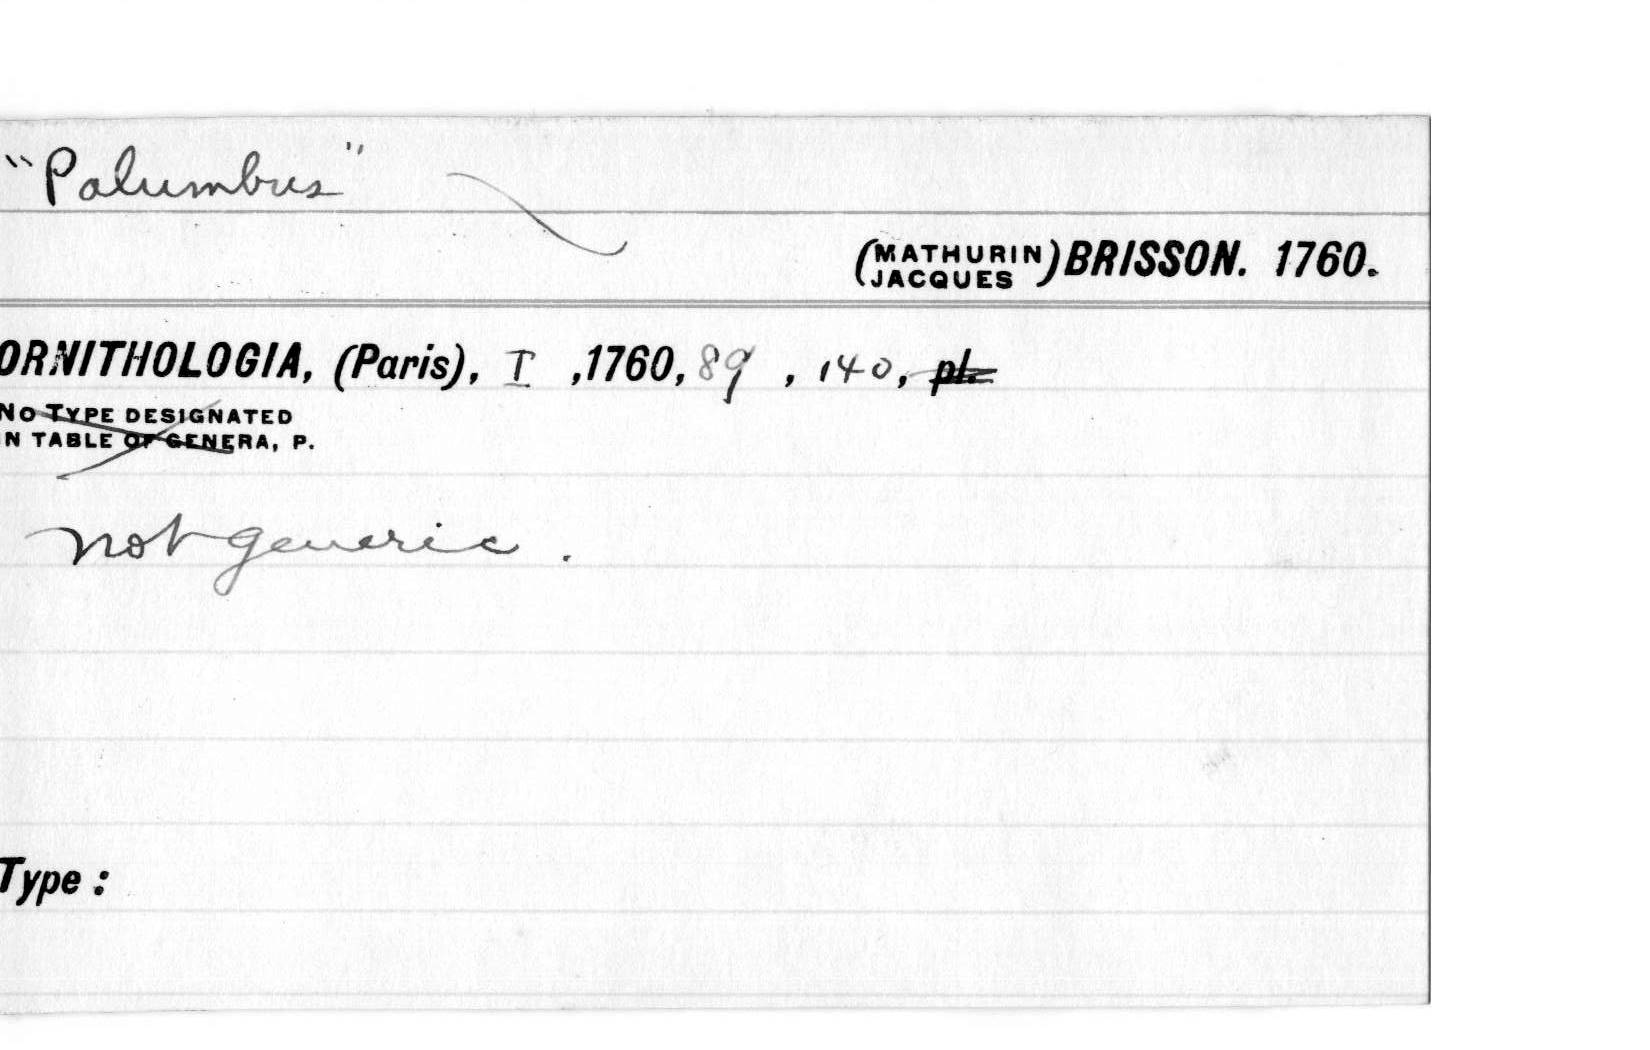 "Palumbus"
(MATHURIN JACQUES) BRISSON. 1760.
ORNITHOLOGIA, (Paris), I ,1760, 89 , 140, pl.
NO TYPE DESIGNATED
IN TABLE OF GENERA, P.
not generic.
Type :